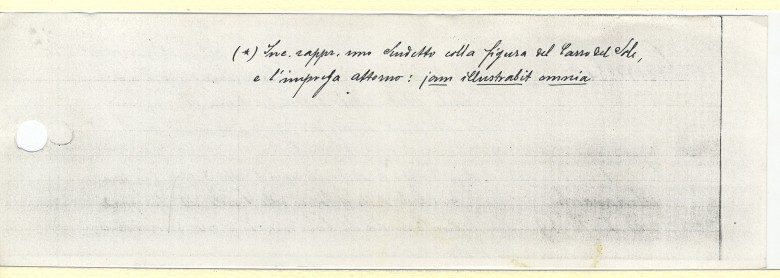 (*) Inc. rappr. uno scudetto colla figura del Carro del Sole,
e l'impresa attorno: jam illustrabit omnia